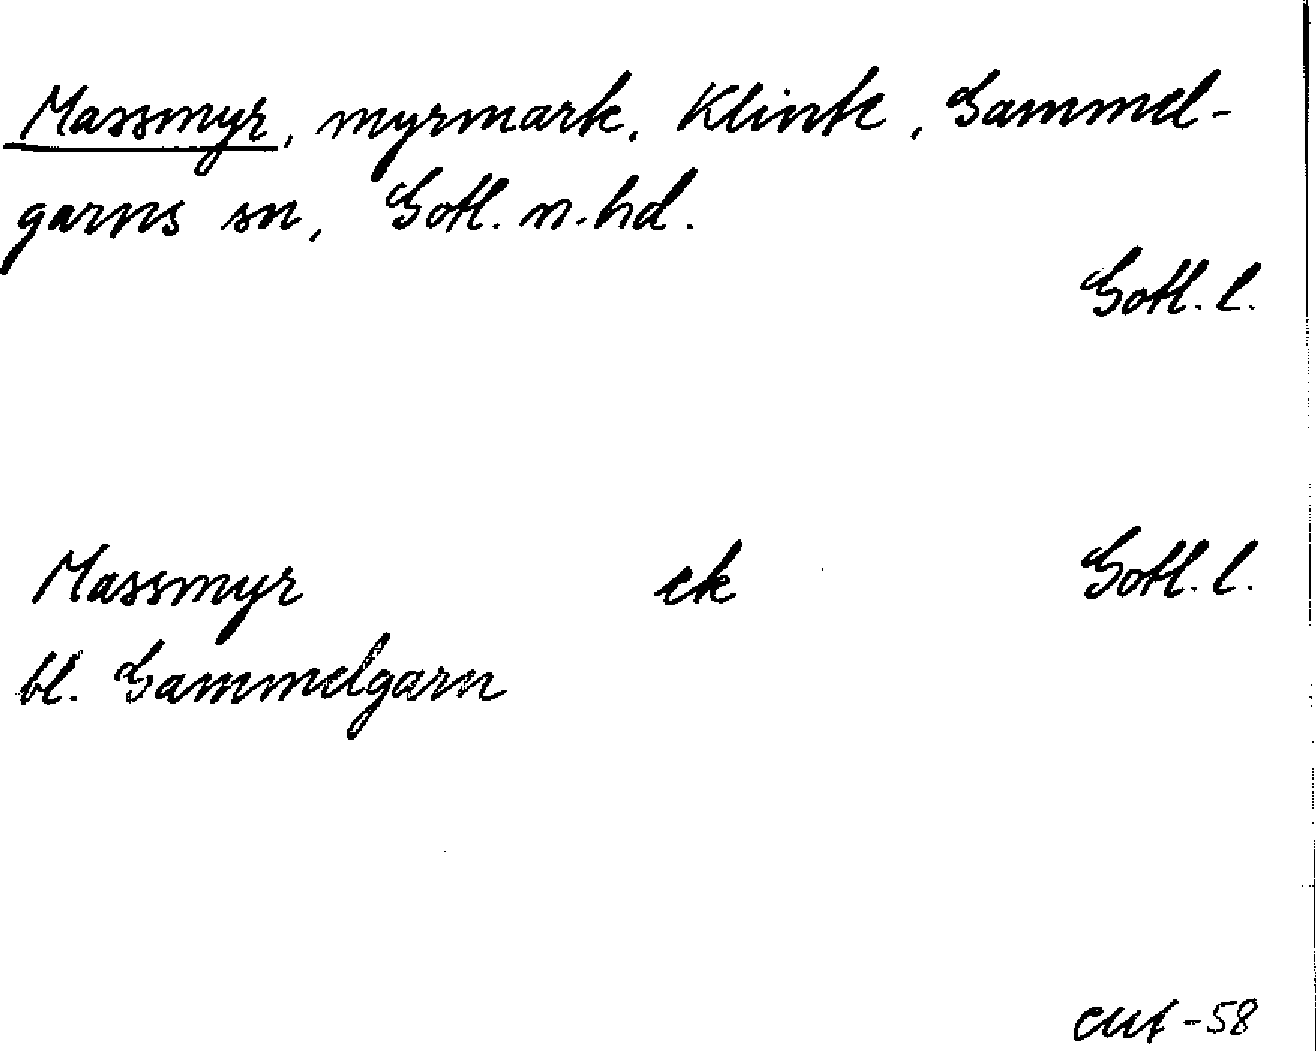 Massmyr, myrmark, Klinte, Gammel-
garns sn, Gotl. n. hd.
Gotl. l.
Massmyr ek Gotl. l.
bl. Gammelgarn
-58